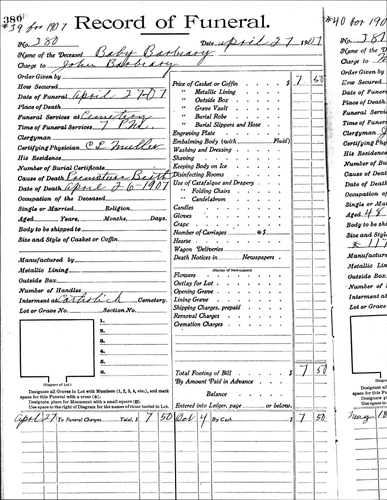 380
#39 for 1907
Record of Funeral.
No. 380 Date April 27 1907
Name of the Deceased Baby Barbeary
Charge to John Barbeary
Order Given by
How Secured
Date of Funeral April 27-07
Place of Death
Funeral Services at Cemetery
Time of Funeral Services
Clergyman
Certifying Physician
His Residence
Number of Burial Certificate
Cause of Death Premature Birth
Date of Death April 26-1907
Occupation of the Deceased
Single or Married Religion
Aged Years, Months, Days.
Body to be shipped to
Size and Style of Casket or Coffin
Manufactured by
Metallic Lining
Outside Box
Number of Handles
Interment at Catholick Cemetery.
Lot or Grave No. Section No.
1.
2.
3.
4.
5.
6.
(Diagram of Lot.)
Designate all Graves in Lot with Numbers (1, 2, 3, 4, etc.), and mark
space for this Funeral with a cross (+).
Designate place for Monument with a small square (□).
Use space to the right of Diagram for the names of those buried in Lot.
April 27 To Funeral Charges Total, $ 7 50
Price of Casket or Coffin $ 7 50
" Metallic Lining
" Outside Box
" Grave Vault
" Burial Robe
" Burial Slippers and Hose
Engraving Plate
Embalming Body (with Fluid)
Washing and Dressing
Shaving
Keeping Body on Ice
Disinfecting Rooms
Use of Catafalque and Drapery
" Folding Chairs
" Candelabrum
Candles
Gloves
Crape
Number of Carriages @ $
Hearse
Wagon Deliveries
Death Notices in Newspapers
(Names of Newspapers)
Flowers
Outlay for Lot
Opening Grave
Lining Grave
Shipping Charges, prepaid
Removal Charges
Cremation Charges
Total Footing of Bill $ 7 50
By Amount Paid in Advance
Balance
Entered into Ledger, page or below.
Oct 4 By Cash $ 7 50
#40 for 190
381
No.
Name of the
Charge to
Order Given
How Secured
Date of Fune
Place of Dea
Funeral Serv
Time of Fune
Clergyman
Certifying Ph
His Residence
Number of Bu
Cause of Deat
Date of Death
Occupation of
Single or Mar
Aged 48
Body to be shi
Size and Style
Manufactured
Metallic Linin
Outside Box
Number of Ha
Interment at
Lot or Grave
Designate
space for this
Design
Use space